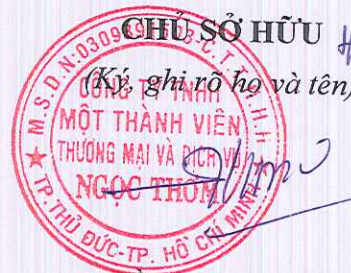 CHỦ SỞ HỮU
(Ký, ghi rõ họ và tên)
CÔNG TY TNHH
MỘT THÀNH VIÊN
THƯƠNG MẠI VÀ DỊCH VỤ
NGỌC THƠM
TP. THỦ ĐỨC-TP. HỒ CHÍ MINH